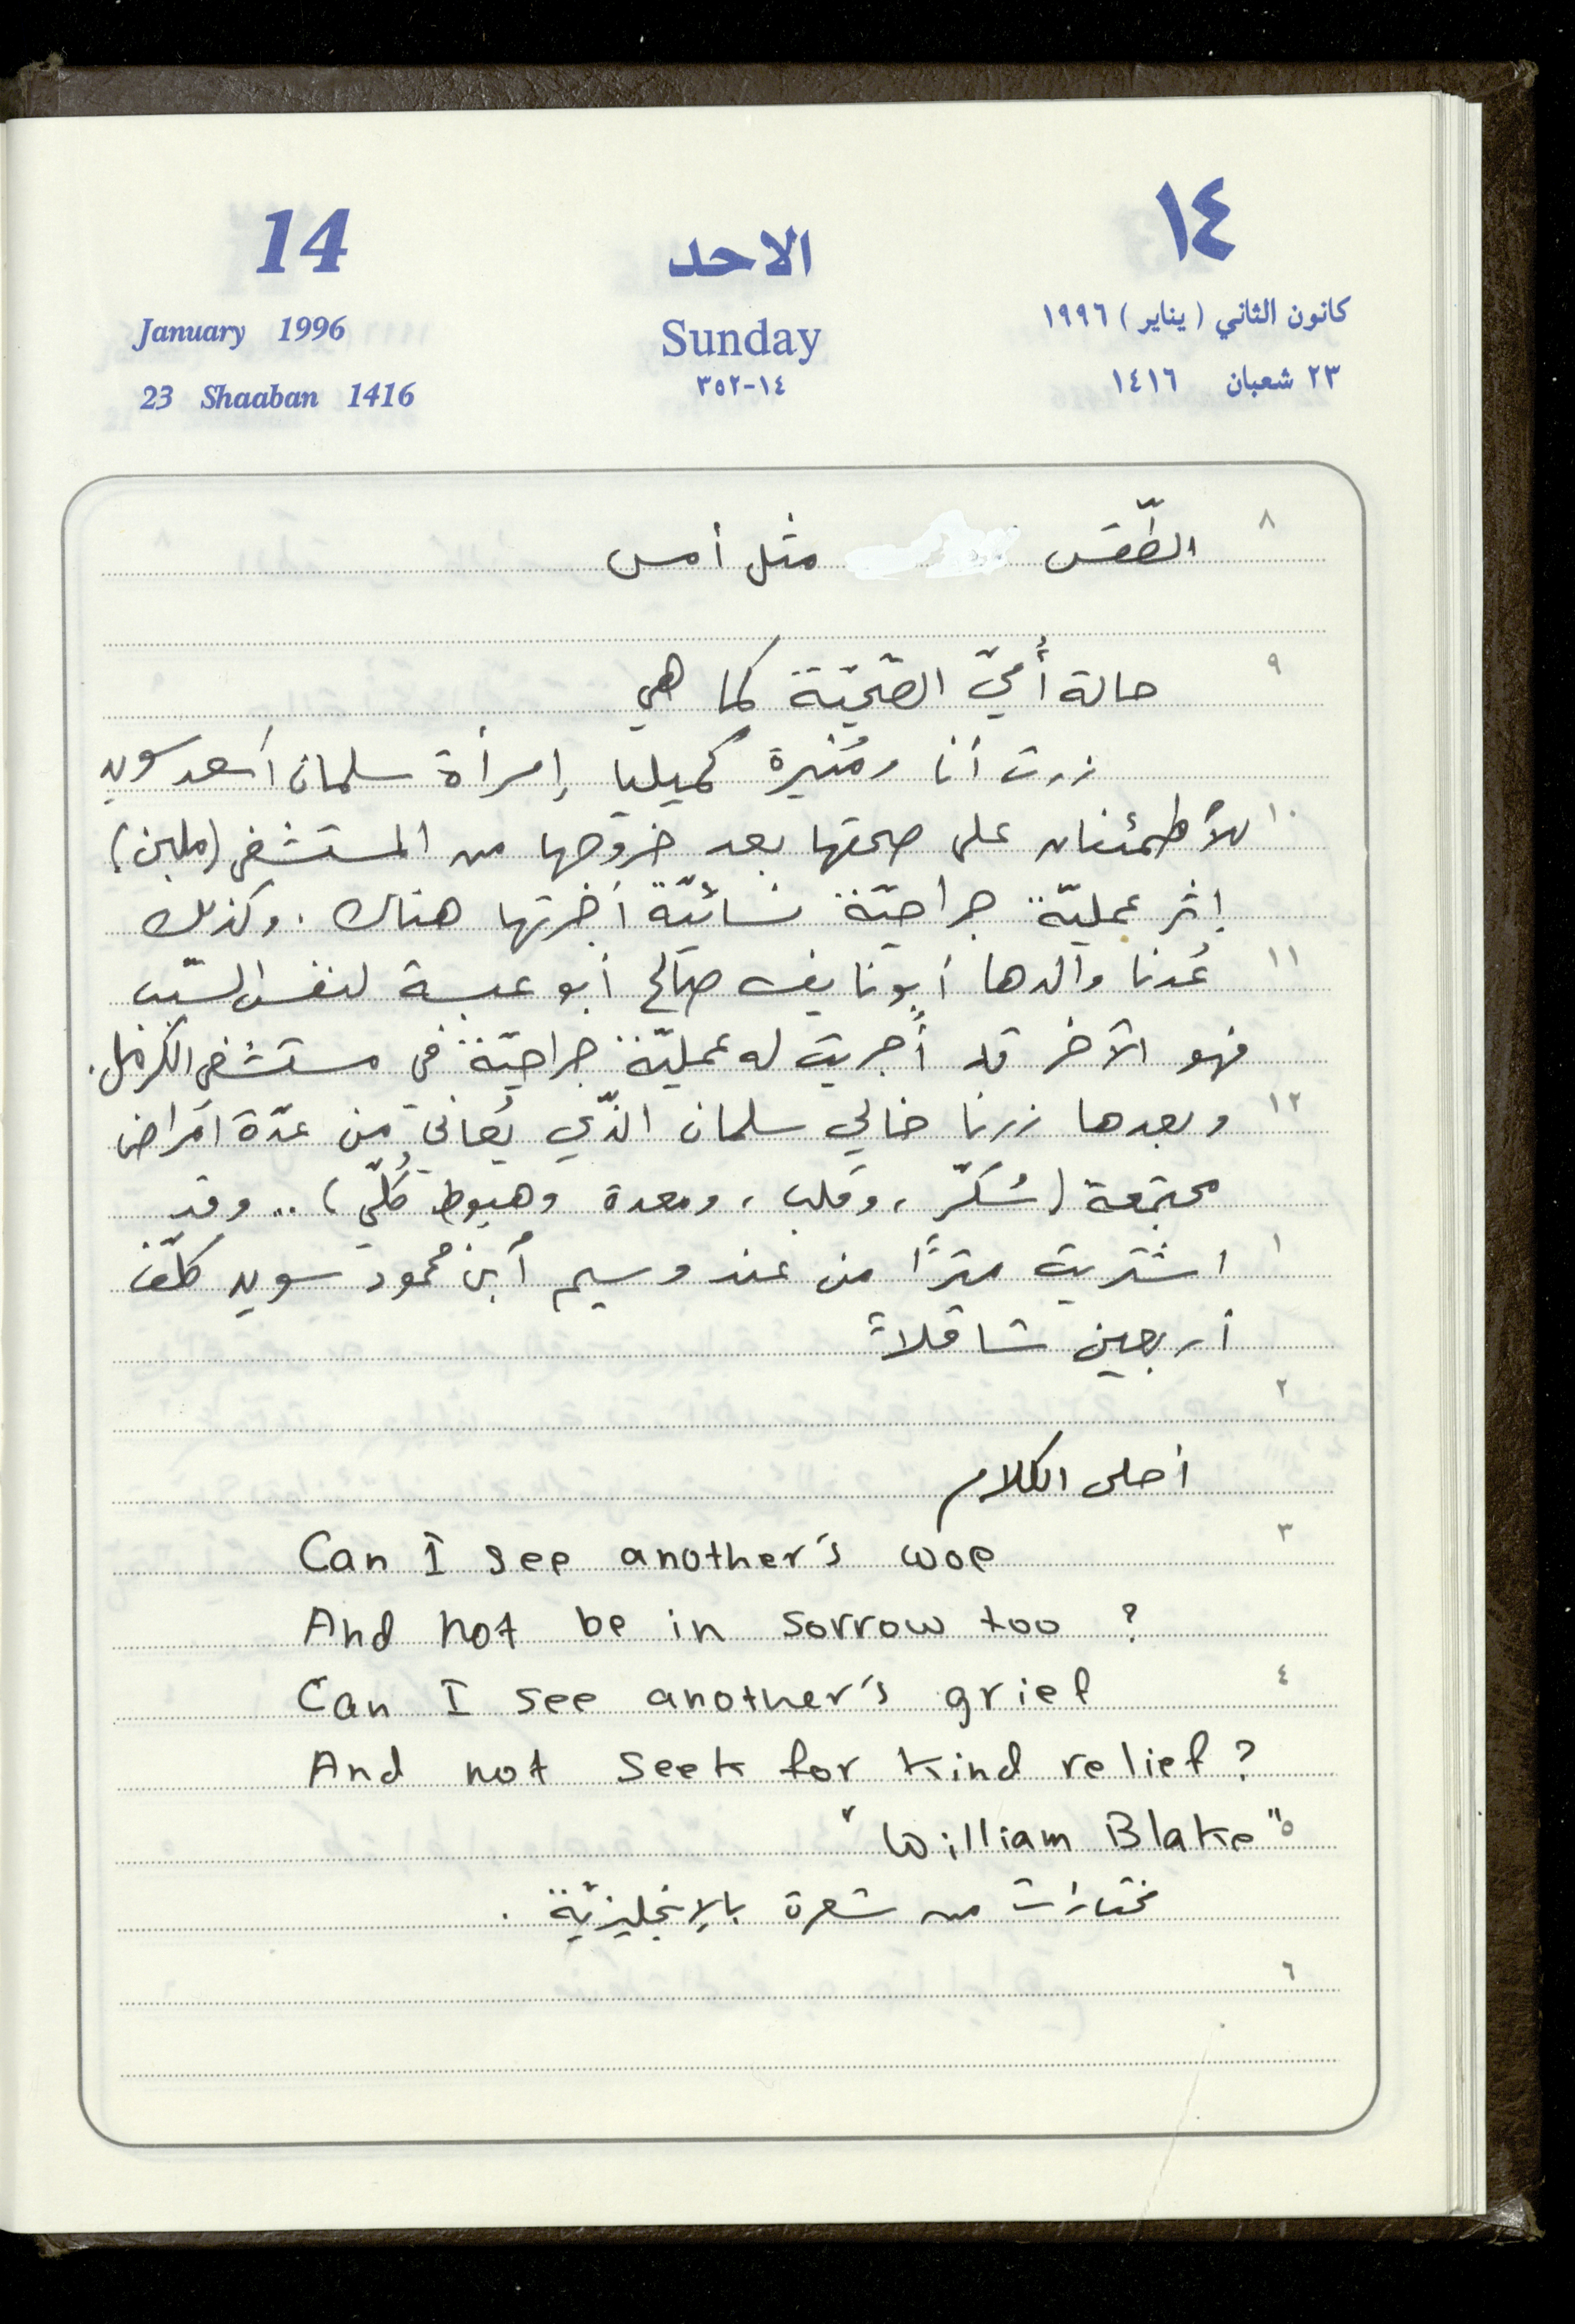 14
الاحد
١٤
January 1996
Sunday
كانون الثاني (يناير) ١٩٩٦
23 Shaaban 1416
١٤-٣٥٢
٢٣ شعبان ١٤١٦
٨
الطّقس مثل أمس
٩
حالة أُميّ الصّحيّة كما هي
زرت أنا ومُنيرة كميليا إمرأة سلمان أسعد سويد
١٠ للأطمئنان على صحتها بعد خروجها من المستشفى (ملبن)
إثر عمليّة جراحيّة نسائيّة أجرتها هناك . وكذلك
١١ عُدنا والدها أبو نايف صالح أبو عبسة لنفس السّبب
فهو الآخر قد أُجريت له عمليّة جراحيّة في مستشفى الكرمل.
١٢ وبعدها زرنا خالي سلمان الذّي يُعاني من عدّة أمراض
مجتمعة (سُكّر ، وقلب ، ومعدة وهبوط كُلّي) .. وقد
١ اشتريت مترًا من عند وسيم أبن محمود سويد كلّف
أربعين شاقلاً
٢
أحلى الكلام
٣
Can I see another's woe
And not be in sorrow too ?
٤
Can I see another's grief
And not seek for kind relief ?
٥
"William Blake"
مختارات من شعرة بالإنجليزيّة .
٦